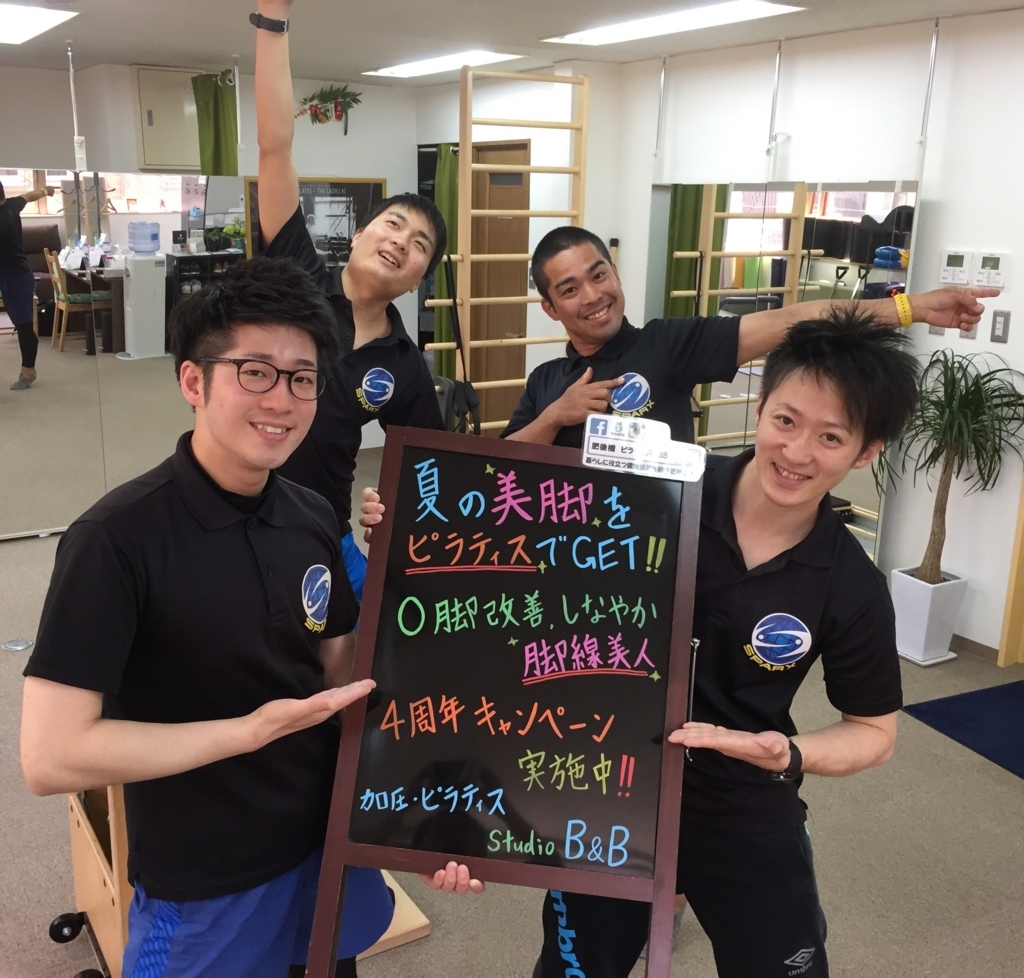 PILATES - THE CADILLAC
SPARX
SPARX
SPARX
SPARX
肥後橋 ピラ
夏の美脚を
ピラティスでGET!!
O脚改善.しなやか
脚線美人
4周年キャンペーン
実施中!!
加圧・ピラティス
studio B&B
umbro
umbro